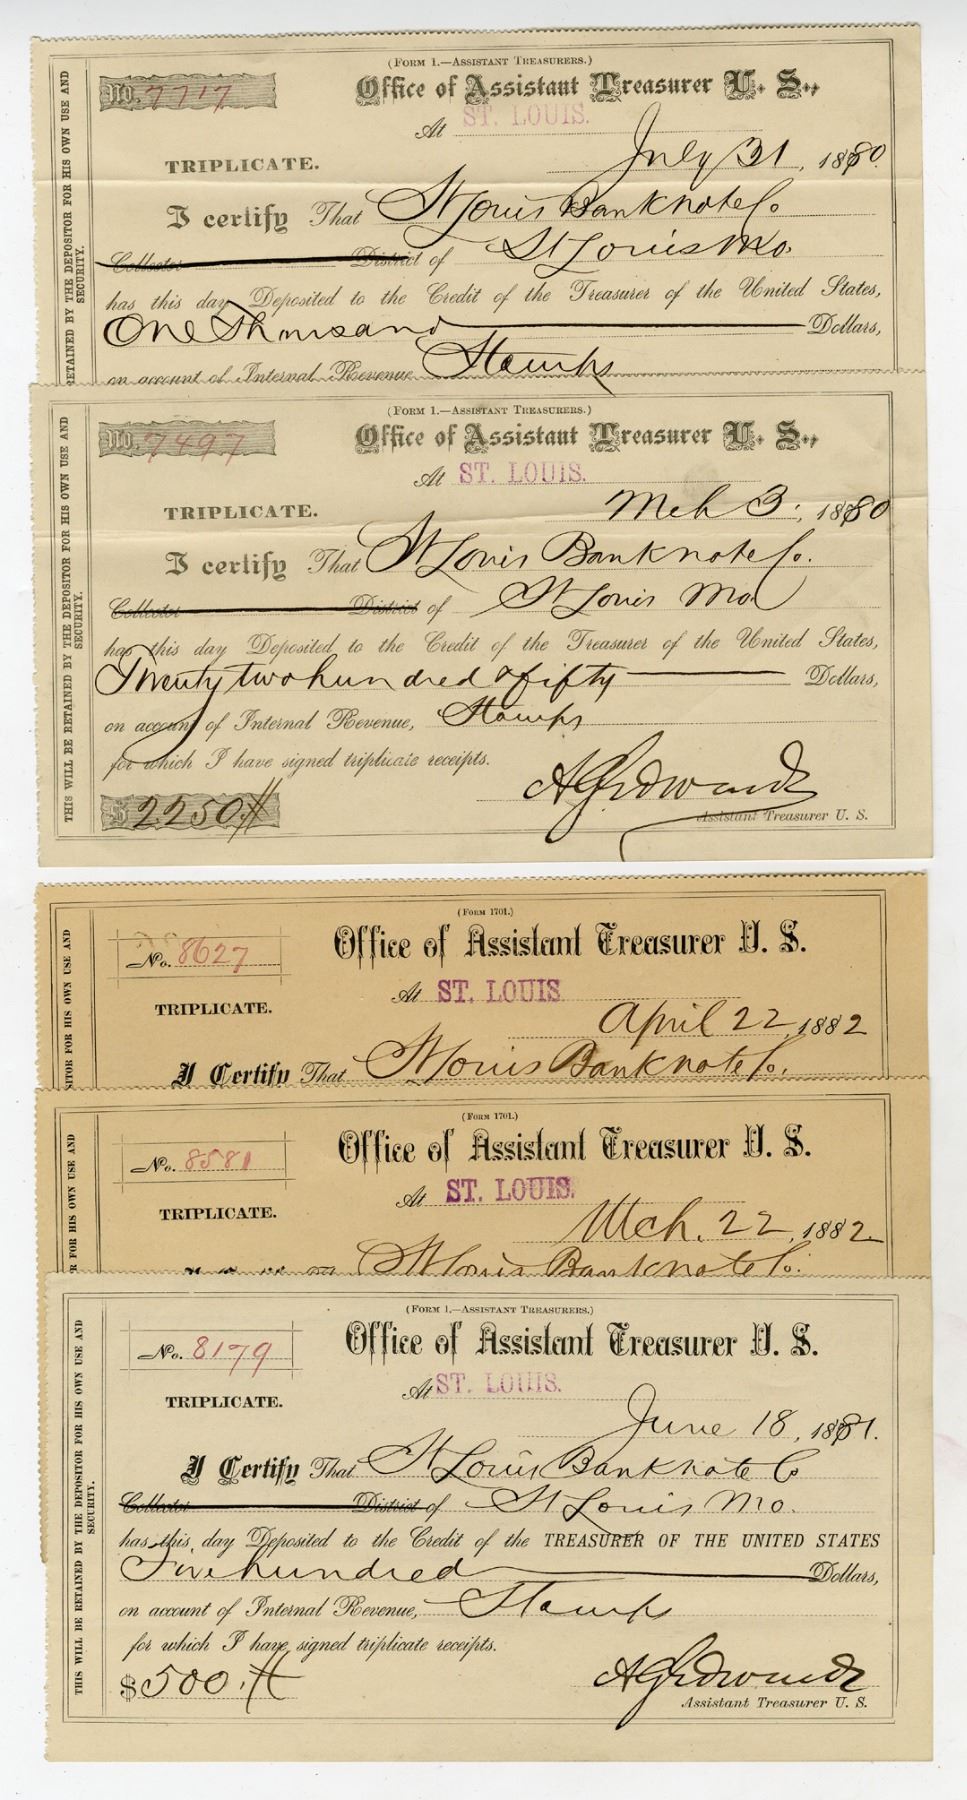 (FORM 1.—ASSISTANT TREASURERS.)
No. 7717
Office of Assistant Treasurer U. S.,
At ST. LOUIS.
TRIPLICATE.
July 31, 1880.
I certify That St Louis Banknote Co
Collector District of St Louis Mo.
has this day Deposited to the Credit of the Treasurer of the United States,
One Thousand Dollars,
on account of Internal Revenue Stamps
RETAINED BY THE DEPOSITOR FOR HIS OWN USE AND
SECURITY.
(FORM 1.—ASSISTANT TREASURERS.)
No. 7497
Office of Assistant Treasurer U. S.,
At ST. LOUIS.
TRIPLICATE.
Mch 3, 1880
I certify That St Louis Banknote Co.
Collector District of St Louis Mo
has this day Deposited to the Credit of the Treasurer of the United States,
Twenty two hundred & fifty Dollars,
on account of Internal Revenue, Stamps
for which I have signed triplicate receipts.
$2250.
A G Edwards
Assistant Treasurer U. S.
THIS WILL BE RETAINED BY THE DEPOSITOR FOR HIS OWN USE AND
SECURITY.
(FORM 1701.)
No. 8627
Office of Assistant Treasurer U. S.
At ST. LOUIS
TRIPLICATE.
April 22, 1882
I Certify That St Louis Banknote Co.
SITOR FOR HIS OWN USE AND
(FORM 1701.)
No. 8581
Office of Assistant Treasurer U. S.
At ST. LOUIS.
TRIPLICATE.
Mch. 22, 1882
St Louis Banknote Co.
R FOR HIS OWN USE AND
(FORM 1.—ASSISTANT TREASURERS.)
No. 8179
Office of Assistant Treasurer U. S.
At ST. LOUIS.
TRIPLICATE.
June 18, 1881.
I Certify That St Louis Banknote Co
Collector District of St Louis Mo.
has this day Deposited to the Credit of the TREASURER OF THE UNITED STATES
Five hundred Dollars,
on account of Internal Revenue, Stamps
for which I have signed triplicate receipts.
$500.
A G Edwards
Assistant Treasurer U. S.
THIS WILL BE RETAINED BY THE DEPOSITOR FOR HIS OWN USE AND
SECURITY.